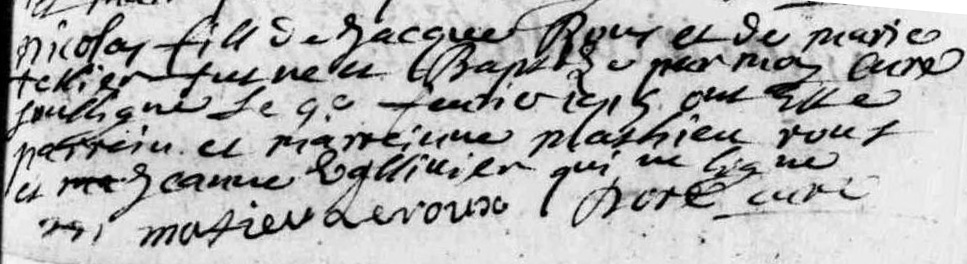 nicolas fill de Jacque Roux et de marie
tellier fut ne et Baptize par moy Curé
soussigne Le 9e feurier ont Este
parrein et marreinne Mathieu roux
et Jeanne qui ne signe
matieu Leroux curé